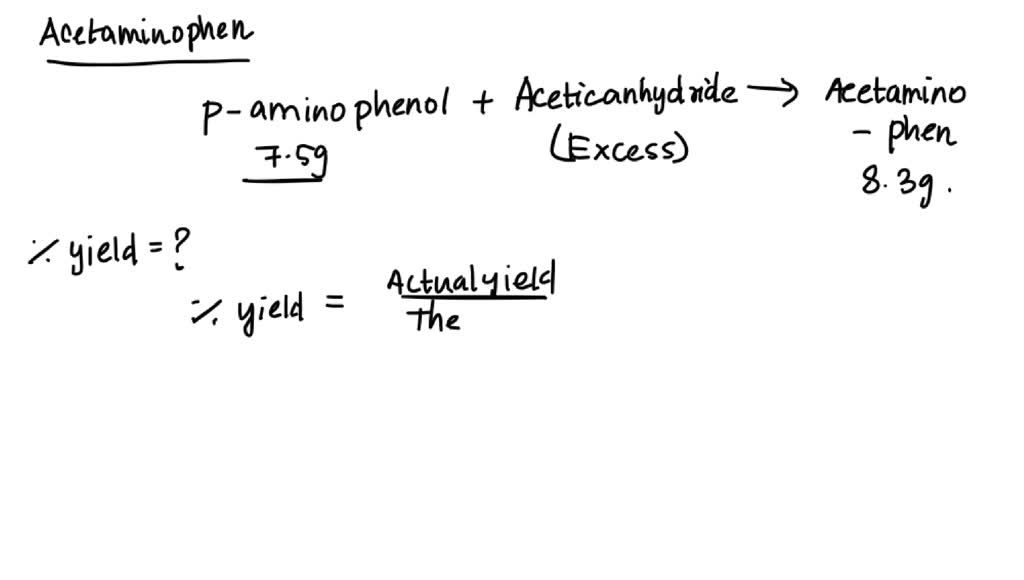 Acetaminophen
p-aminophenol + Aceticanhydride → Acetamino
- phen
7.5g (Excess) 8.3g.
% yield = ?
% yield = Actual yield
The